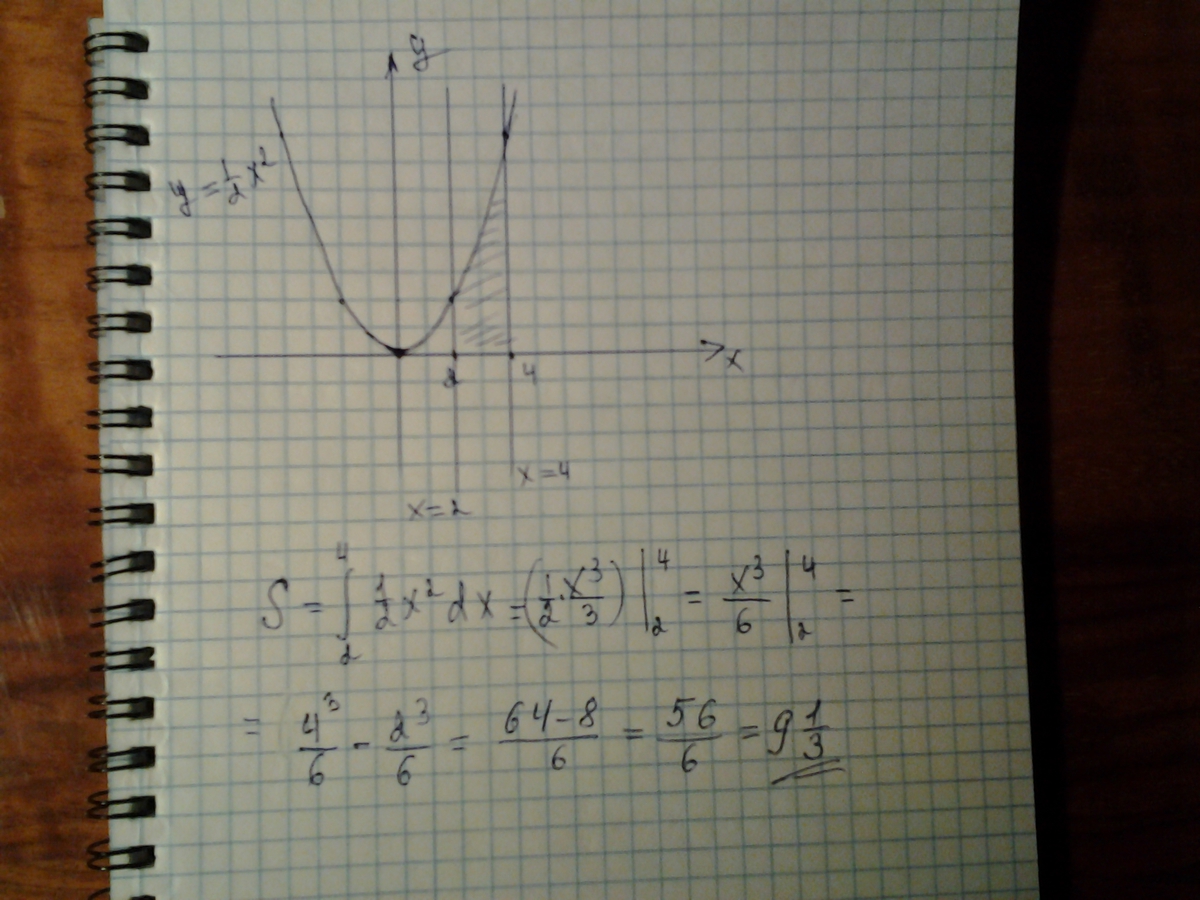 y
y = 1/2 x²
x
2 4
x=4
x=2
S = ∫₂⁴ 1/2 x² dx = (1/2 · x³/3) |₂⁴ = x³/6 |₂⁴ =
= 4³/6 - 2³/6 = (64-8)/6 = 56/6 = 9 1/3